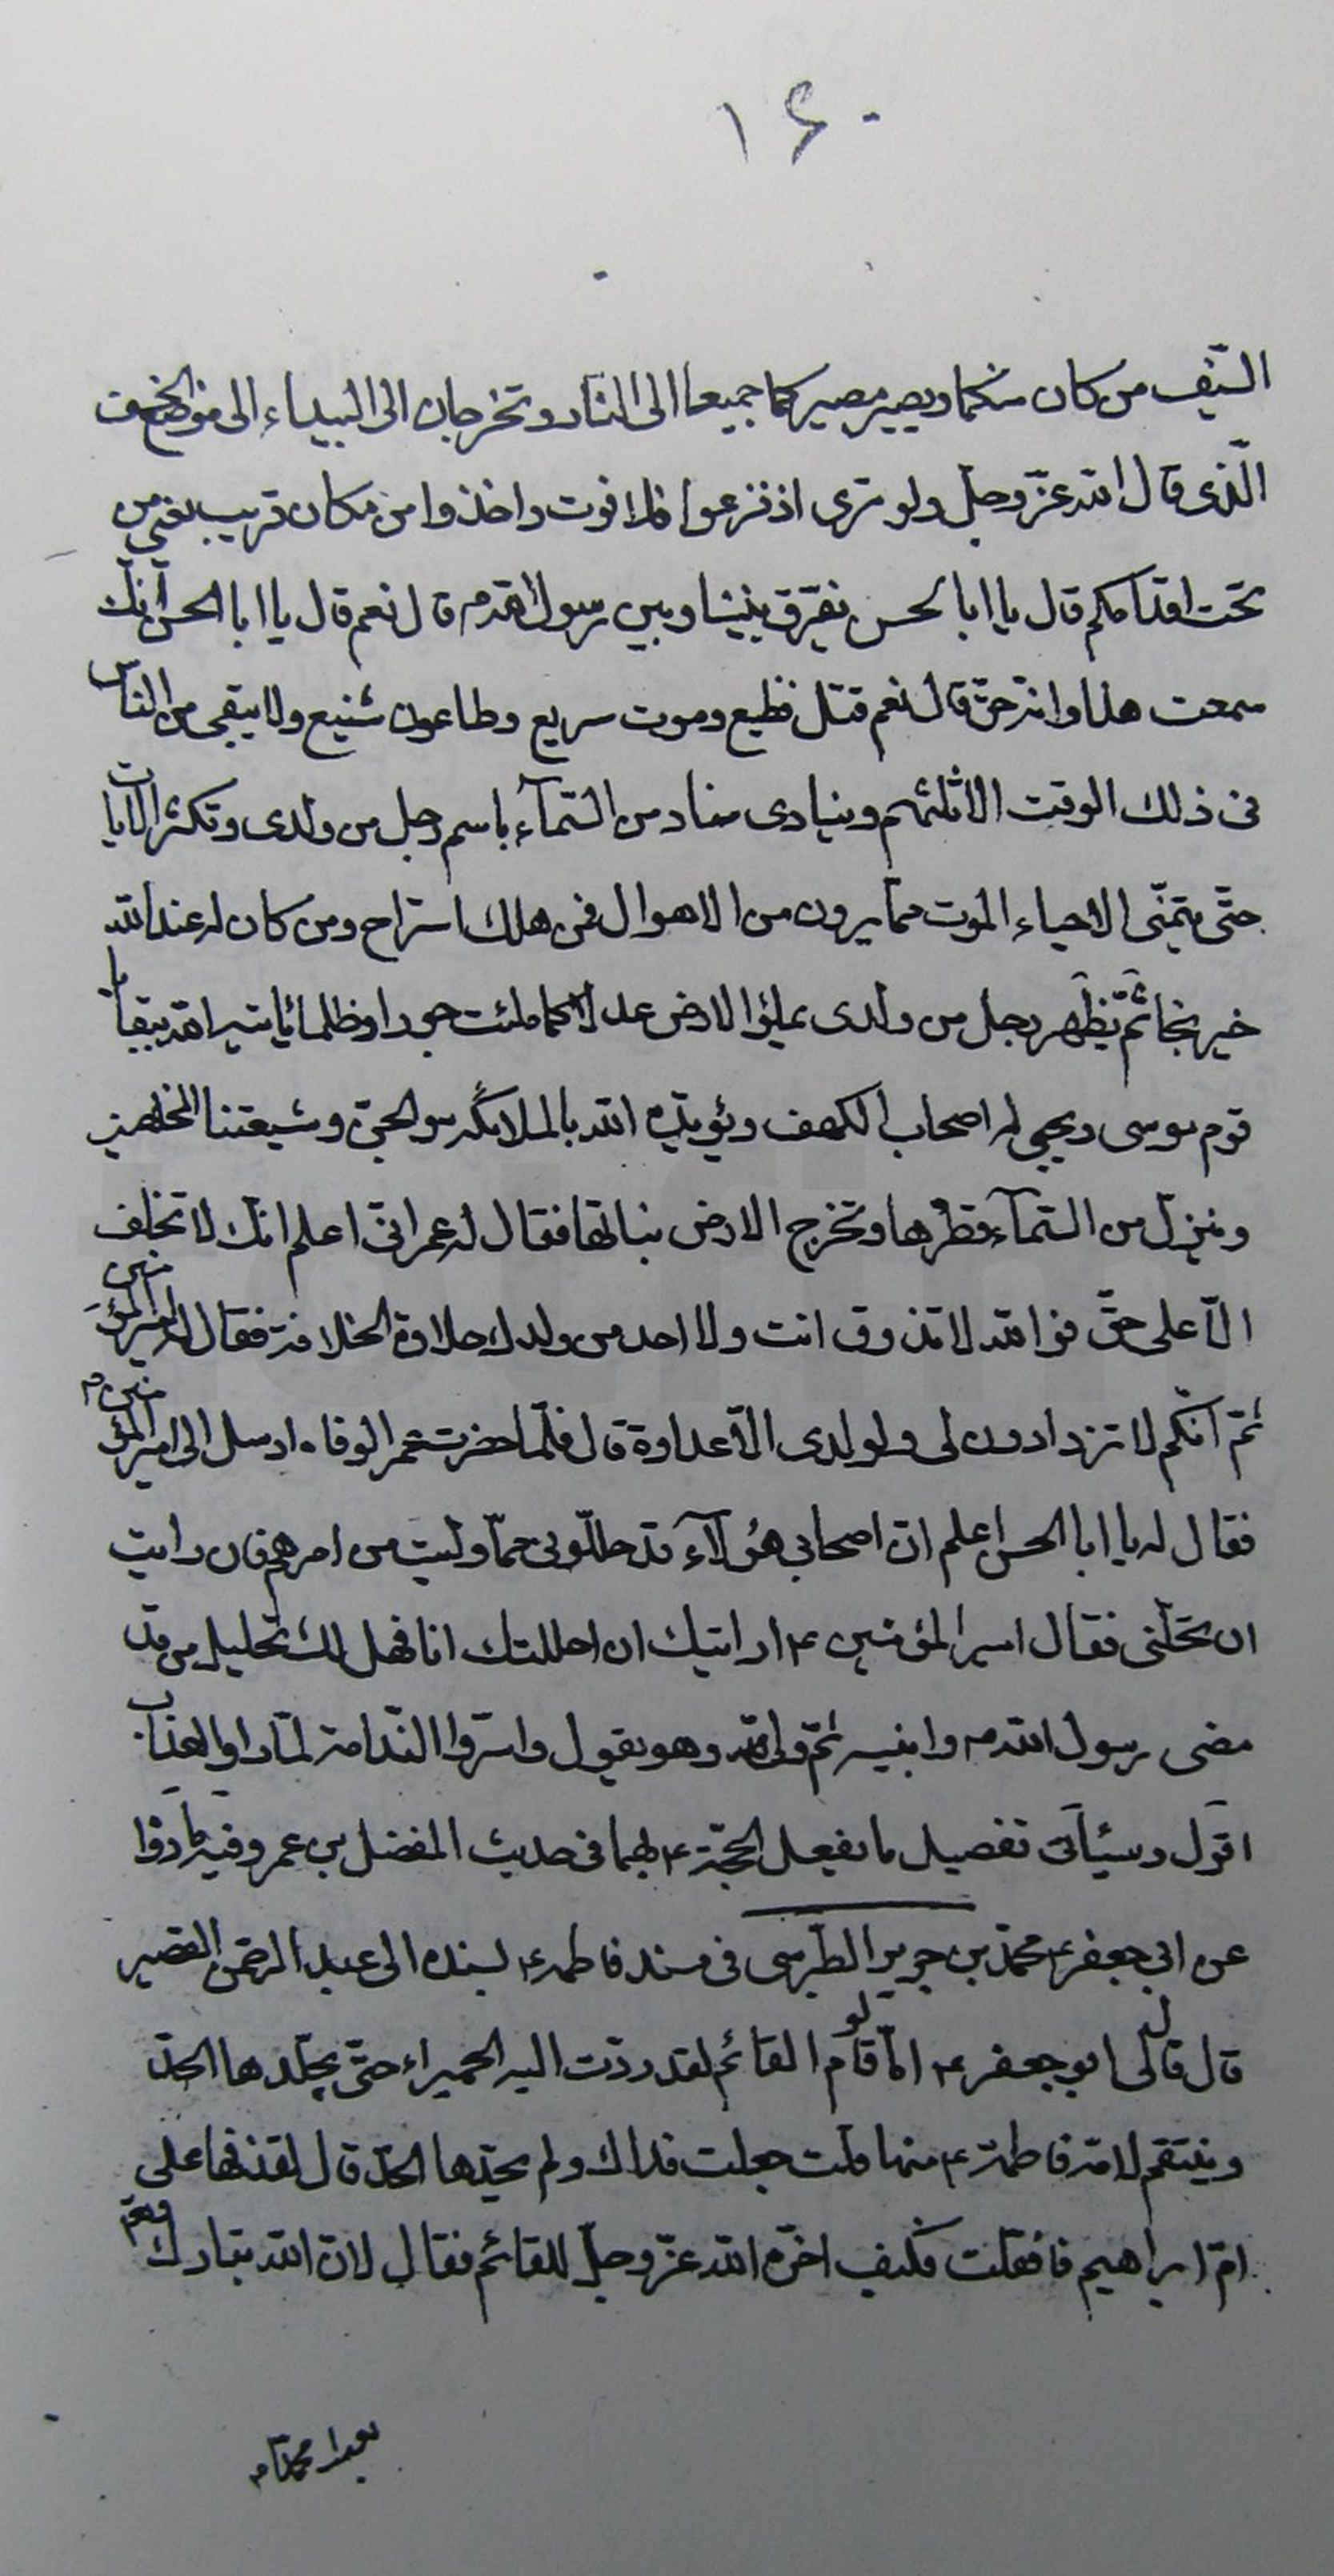 ۱۶۰
السّيف من كان منكما ويصير مصيركما جميعا الى النار وتخرجان الى البيداء الى موضع الخسف
الّذى قال الله عزّ وجلّ ولو ترى اذ فزعوا فلا فوت واخذوا من مكان قريب يعنى من
تحت اقدامكم قال يا ابا الحسن يفرّق بيننا وبين رسول الله ص قال نعم قال يا ابا الحسن انّك
سمعت هذا وانه حقّ قال نعم قتل فظيع وموت سريع وطاعون شنيع ولا يبقى من الناس
فى ذلك الوقت الا ثلثهم وينادى مناد من السّماء باسم رجل من ولدى وتكثر الايات
حتّى يتمنّى الاحياء الموت ممّا يرون من الاهوال فمن هلك استراح ومن كان له عند الله
خير نجا ثمّ يظهر رجل من ولدى يملؤا الارض عدلا كما ملئت جورا وظلما يأتيه الله ببقايا
قوم موسى ويحيى له اصحاب الكهف ويؤيّده الله بالملائكة والجنّ وشيعتنا المخلصين
وينزل من السّماء قطرها وتخرج الارض نباتها فقال له عمر انّى اعلم انّك لا تحلف
الّا على حقّ فوالله لا تذوق انت ولا احد من ولدك حلاوة الخلافة فقال له امير المؤمنين
ثمّ انّكم لا تزدادون لى ولولدى الّا عداوة قال فلمّا حضرت عمر الوفاه ارسل الى امير المؤمنين ع
فقال له يا ابا الحسن اعلم انّ اصحابى هؤلاء قد حللّونى ممّا ولّيت من امرهم فان رايت
ان تحلّنى فقال امير المؤمنين ع ارايتك ان احللتك انا فهل لك تحليل من قد
مضى رسول الله ص وابنيه ثمّ ولّى عنه وهو يقول واسرّوا النّدامة لمّا راوا العذاب
اقول وسيأتى تفصيل ما يفعل الحجّة ع بهما فى حديث المفضل بن عمر وفيه ما رووا
عن ابى جعفر ع محمّد بن جرير الطّبرسى فى مسند فاطمة ع بسنده الى عبد الرحمن القصير
قال قال لى ابو جعفر ع امّا لو قام القائم لقد ردّت اليه الحميراء حتّى يجلّدها الحدّ
وينتقم لامّه فاطمة ع منها قلت جعلت فداك ولم يحدّها الحدّ قال لقذفها على
امّ ابراهيم فقلت فكيف اخّره الله عزّ وجلّ للقائم فقال لانّ الله تبارك وتعم
بعث محمّدا ص